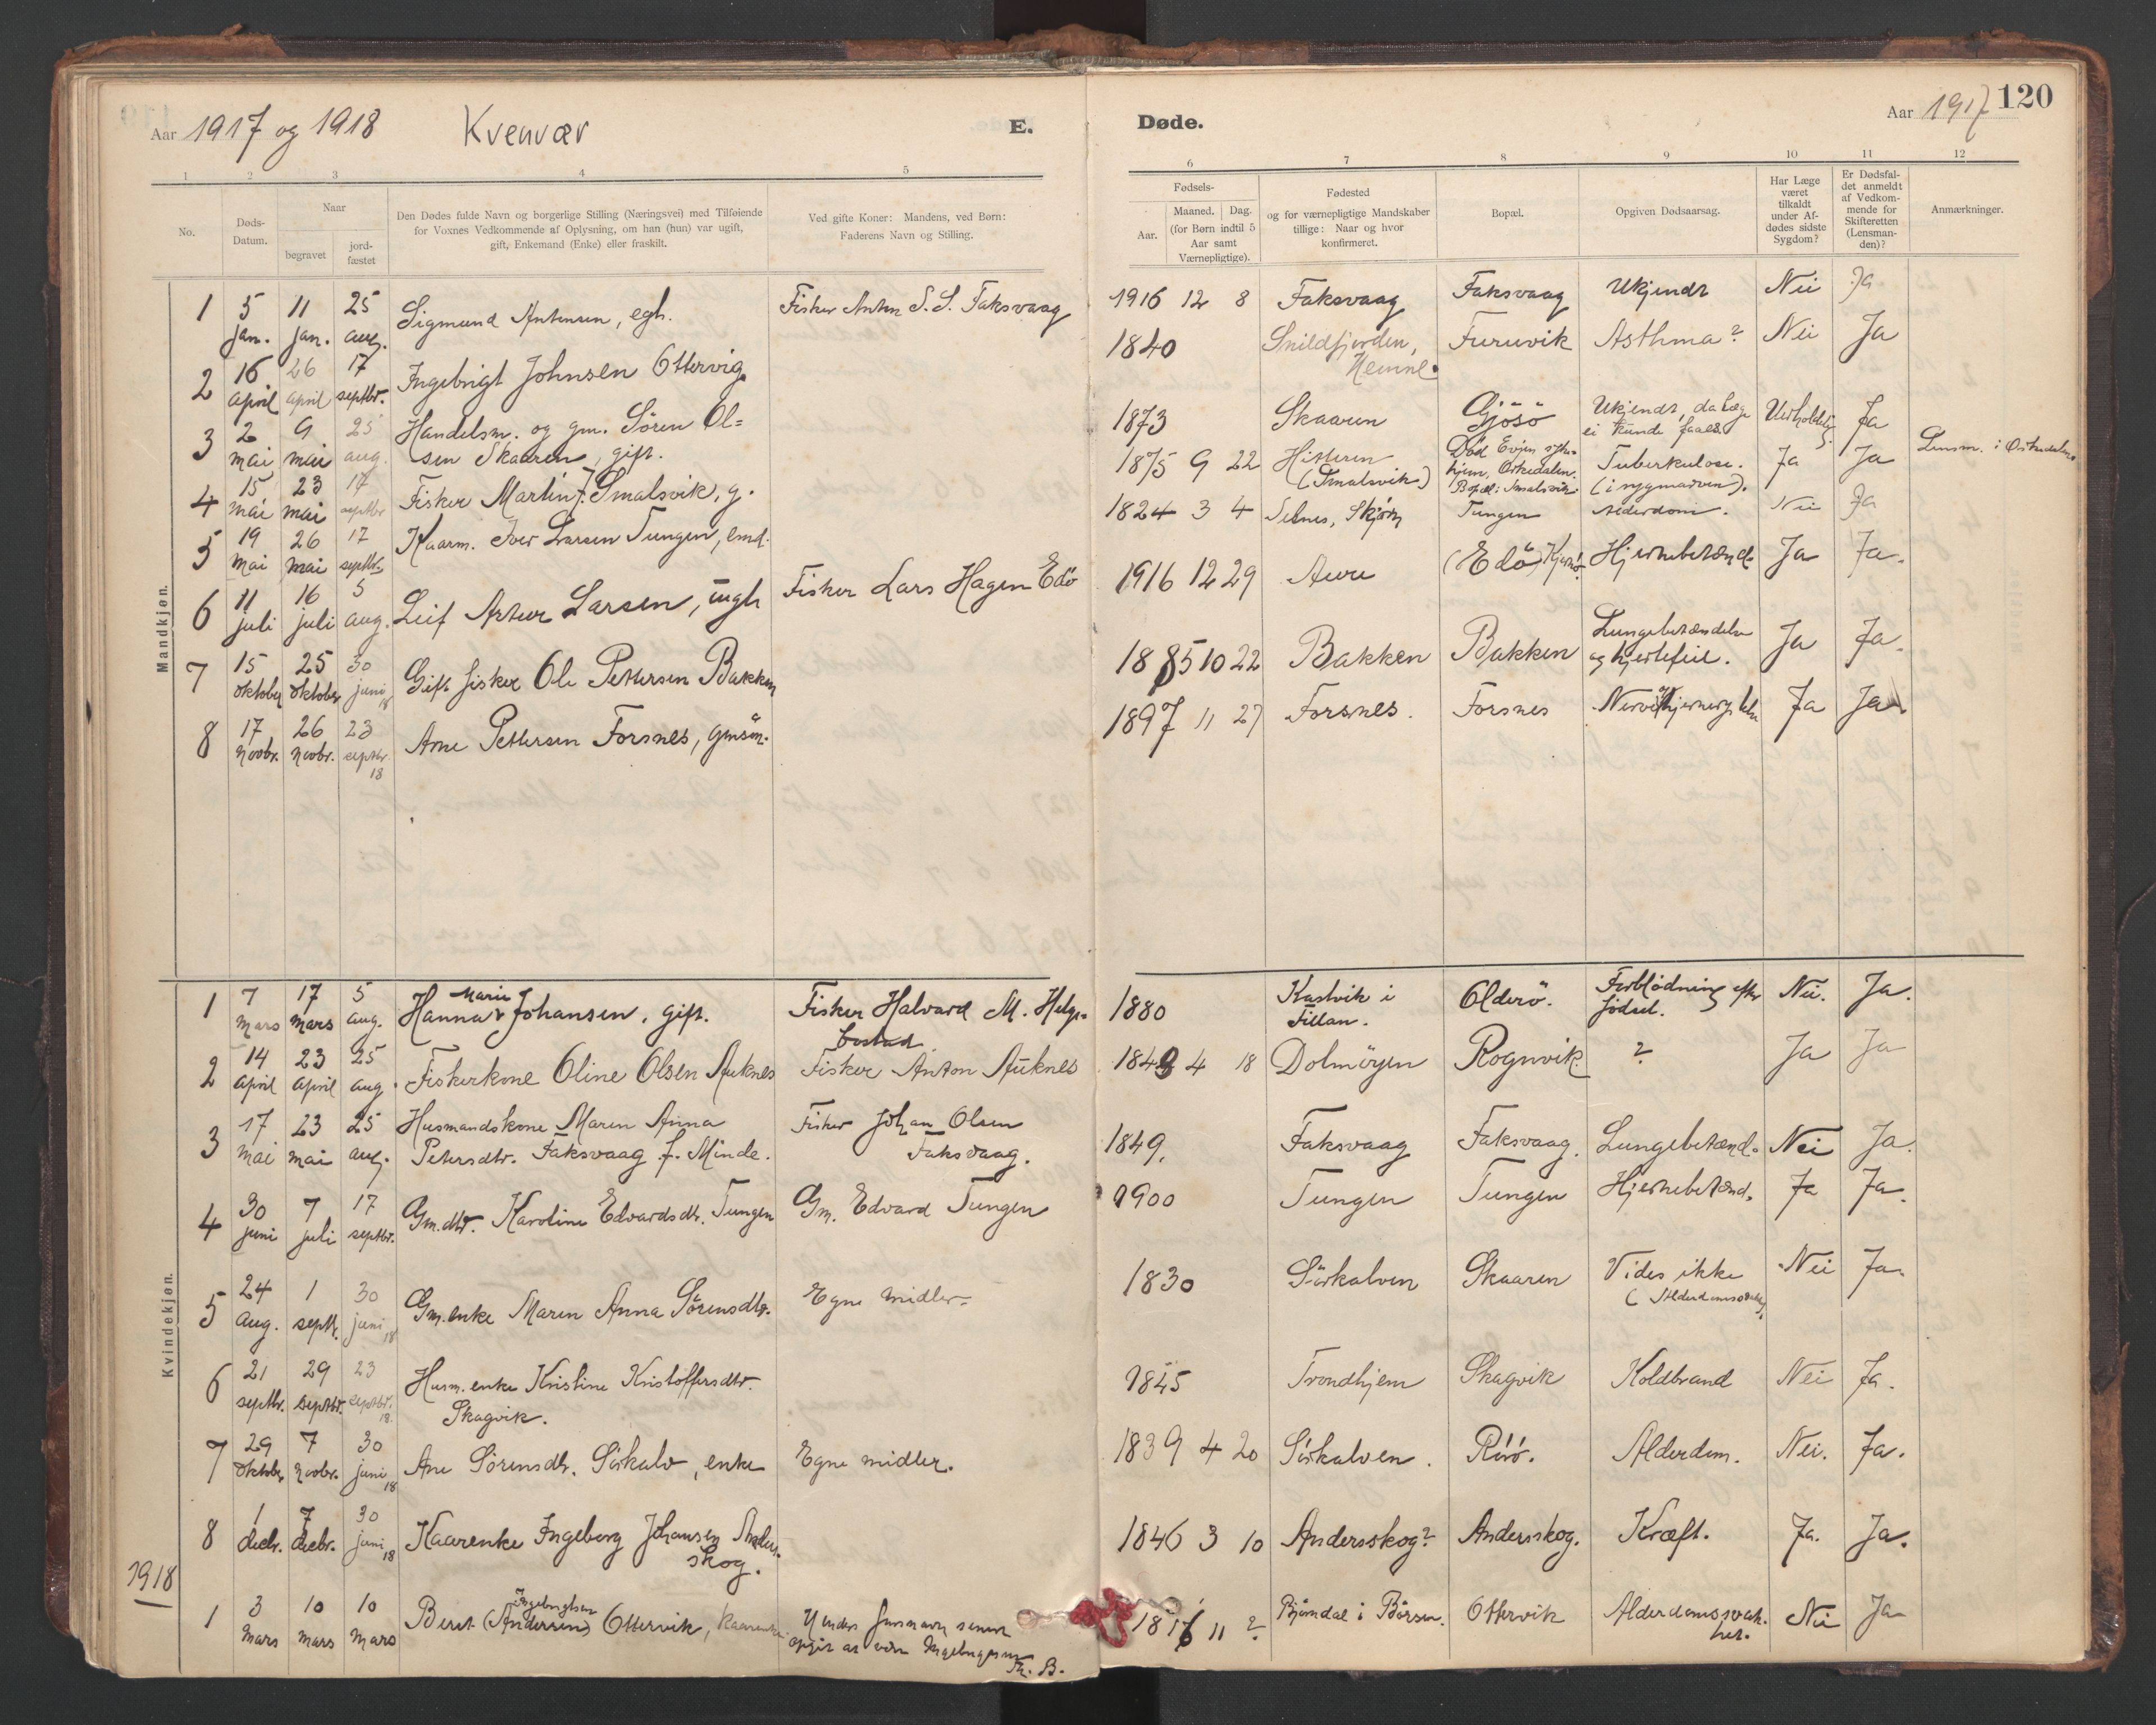 Aar 1917 og 1918 Kvenvær E.
Døde. Aar 1917 120
1 2 3 4 5
No.
Døds-
Datum.
Naar
begravet
jord-
fæstet
Den Dødes fulde Navn og borgerlige Stilling (Næringsvei) med Tilføiende
for Voxnes Vedkommende af Oplysning, om han (hun) var ugift,
gift, Enkemand (Enke) eller fraskilt.
Ved gifte Koner: Mandens, ved Børn:
Faderens Navn og Stilling.
6 7 8 9 10 11 12
Fødsels-
Aar.
Maaned. Dag.
(for Børn indtil 5
Aar samt
Værnepligtige).
Fødested
og for værnepligtige Mandskaber
tillige: Naar og hvor
konfirmeret.
Bopæl.
Opgiven Dødsaarsag.
Har Læge
været
tilkaldt
under Af-
dødes sidste
Sygdom?
Er Dødsfal-
det anmeldt
af Vedkom-
mende for
Skifteretten
(Lensman-
den)?
Anmærkninger.
Mandkjøn.
1 5 jan. 11 jan. 25 aug. Sigmund Antonsen, egh. Fisker Anton S. S. Faksvaag 1916 12 8 Faksvaag Faksvaag Ukjendt Nei Ja
2 16 april 26 april 17 septbr. Ingebrigt Johnsen Ottervig 1840 Snildfjorden, Furuvik Asthma? Nei Ja
Hemne.
3 2 mai 9 mai 25 aug. Handelsm. og gm. Sören Ol=
sen Skaaren, gift. 1873 Skaaren Gjösö Ukjendt, da læge
ei kunde faaes. Ja
4 15 mai 23 mai 17 septbr Fisker Martin J. Smalsvik, g. 1875 9 22 Hitteren
(Smalsvik) Död Evjen syke-
hjem, Orkedalen.
Bopæl: Smalsvik Tuberkulose.
(i rygmarven). Ja Ja Lensm. i Orkedalen
5 19 mai 26 mai 17 septbr Kaarm. Iver Larsen Tungen, emd. 1824 3 4 Selnes, Tungen Alderdom. Nei Ja
6 11 juli 16 juli 5 aug. Leif Artur Larsen, ugh Fisker Lars Hagen Edö 1916 12 29 Aure (Edö) Hjernebetænd. Ja Ja.
7 15 oktober 25 oktober 30 juni 18 Gift fisker Ole Pettersen Bakken 1885 10 22 Bakken Bakken Lungebetændelse
og hjertefeil. Ja Ja.
8 17 novbr. 26 novbr. 23 septbr 18 Arne Pettersen Forsnes, gmsön. 1897 11 27 Forsnes. Forsnes Ja Ja
Kvindekjøn.
1 7 mars 17 mars 5 aug. Hanna Marie Johansen, gift. Fisker Halvard M. Helge-
bostad 1880 Kastvik i
Fillan. Olderö. Forblödning efter
födsel. Nei. Ja.
2 14 april 23 april 25 aug. Fiskerkone Oline Olsen Auknes Fisker Anton Auknes 1849 4 18 Dolmöyen Rognvik. ? Ja Ja
3 17 mai 23 mai 25 aug. Husmandskone Maren Anna
Petersdtr. Faksvaag f. Minde. Fisker Johan Olsen
Faksvaag. 1849. Faksvaag Faksvaag. Lungebetænd. Nei Ja.
4 30 juni 7 juli 17 septbr. Gm.dtr. Karoline Edvardsdtr. Tungen Gm. Edvard Tungen 1900 Tungen Tungen Hjernebetænd. Ja Ja.
5 24 aug. 1 septb. 30 juni 18 Gm.enke Maren Anna Sörensdtr. Egne midler. 1830 Sörkalven Skaaren Vides ikke Nei Ja.
6 21 septbr. 29 septbr. 23 septbr. 18. Husm.enke Kristine Kristoffersdtr.
Skagvik. 1845 Trondhjem Skagvik Koldbrand Nei Ja.
7 29 oktober 7 novbr. 30 juni 18 Ane Sörensdtr. Sörkalv, enke Egne midler. 1839 4 20 Sörkalven. Alderdom. Nei. Ja.
8 1 decbr. 7 decbr. 30 juni 18 Kaarenke Ingeborg Johansen Anders-
skog. 1846 3 10 Andersskog? Andersskog. Kræft. Ja. Ja.
1918
1 3 mars 10 mars 10 mars Beret (Andersen) Ingebrigtsen Ottervik, kaarenke 11 ? Björndal i Börsen. Ottervik Alderdomssvak-
het. Nei Ja